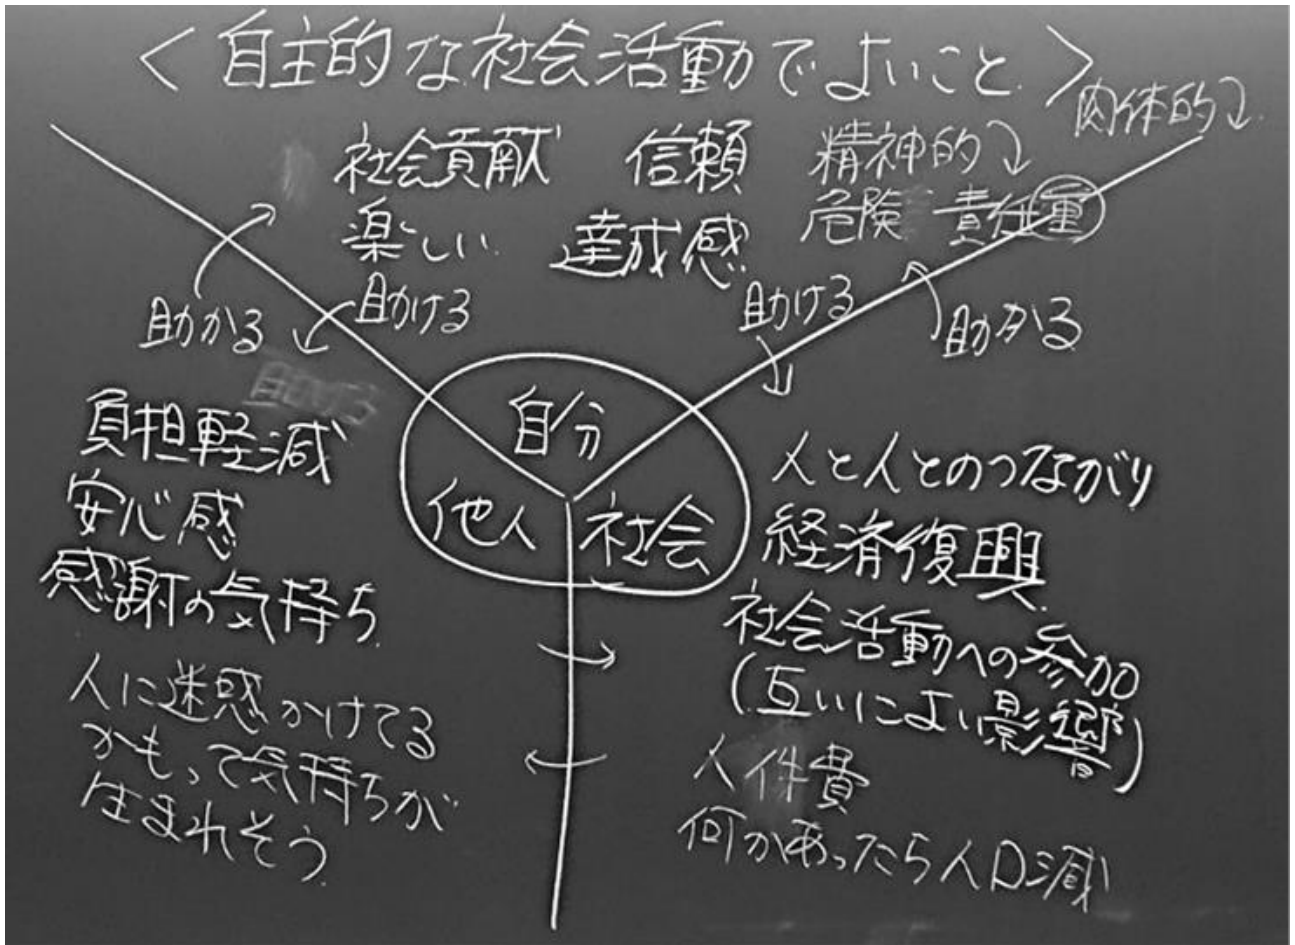 〈自主的な社会活動でよいこと〉
肉体的↓
社会貢献 信頼 精神的↓
楽しい 達成感 危険 責任重
助かる 助ける 助ける 助かる
自分
他人 社会
負担軽減
安心感
感謝の気持ち
人に迷惑かけてる
かもって気持ちが
生まれそう
人と人とのつながり
経済復興
社会活動への参加
(互いによい影響)
人件費
何かあったら人口減